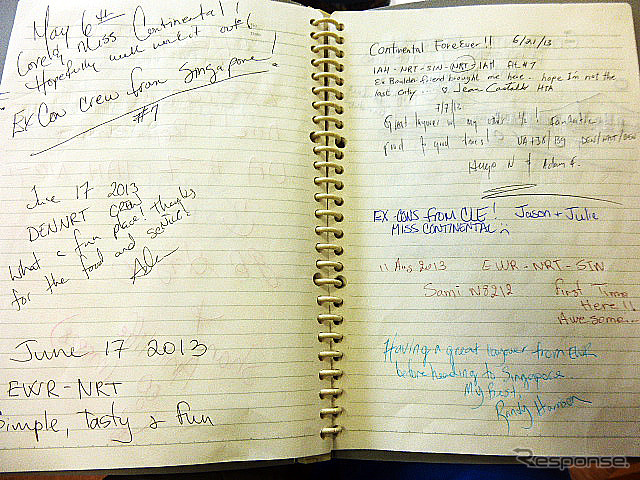 May 6th
Lovely miss Continental!
Hopefully will work it out!
Ex Con crew from Singapore!
#1
June 17 2013
DENNRT crew
What a fun place! Thanks
for the food and service!
June 17 2013
EWR-NRT
Simple, Tasty & fun
Continental ForeEver!! 6/21/13
IAH-NRT-SIN-(NRT) IAH
Ex Boulder friend brought me here - hope I'm not the
last City
Great layover w/ my
food & good times!
Hugo N & Adam F.
EX-CONS FROM CLE! Jason + Julie
MISS CONTINENTAL
11 Aug 2013 EWR-NRT-SIN
Sami N8212 First Time
Here!!
Awesome
Having a great layover from EWR
before heading to Singapore
My Best,
Randy
Response.